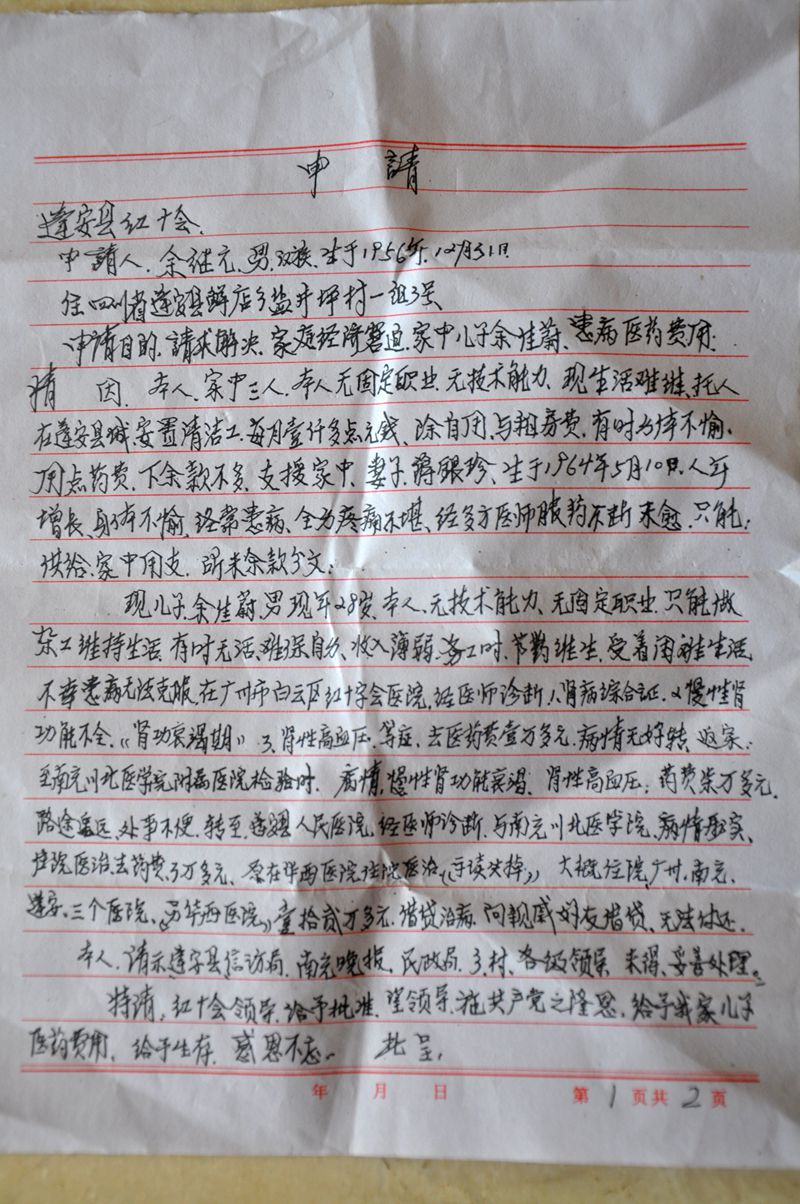 申 請
蓬安县红十会.
申請人.余继元.男.汉族.生于1956年.12月31日.
住四川省蓬安县鲜店乡盐井坪村一组3号
申请目的.請求解决.家庭经济窘迫.家中儿子余佳蔚.患病医药费用:
情 因.本人.家中三人.本人无固定职业.无技术能力.现生活难维.托人
在蓬安县城安置清洁工.每月壹仟多点元钱、除自用.与租房费.有时身体不愉.
用点药费.下余款不多.支援家中.妻子蒋银珍.生于1964年5月10日.人年
增长.身体不愉.经常患病.全身疼痛不堪、经多方医师服药不断未愈.只能;
供给.家中用支.所未余款分文:
现儿子.余佳蔚.男.现年28岁.本人.无技术能力.无固定职业.只能做
杂工维持生活.有时无活.难保自身、收入薄弱.务工时.节约维生.受着困难生活.
不幸患病无法克服.在广州市白云区红十字会医院,经医师诊断.1.肾病综合征.2慢性肾
功能不全.《肾功衰竭期》3.肾性高血压.等症.去医药费壹万多元.病情无好转.返家:
至南充川北医学院附属医院检验时.病情.慢性肾功能衰竭.肾性高血压:药费柒万多元.
路途遥远.处事不便.转至.蓬安县人民医院.经医师诊断.与南充川北医学院.病情属实.
住院医治.去药费.3万多元、在华西医院住院医治 大概住院.广州.南充.
蓬安.三个医院、华西医院》壹拾贰万多元.借贷治病.向亲戚好友借贷、无法付还.
本人.请示蓬安县信访局.南充晚报.民政局.乡.村、各级领导.未得.妥善处理。
特请,红十会领导.给予批准.望领导.施共产党之隆恩.给予我家儿子
医药费用.给予生存.感恩不忘. 此呈.
年 月 日 第 1 页共 2 页